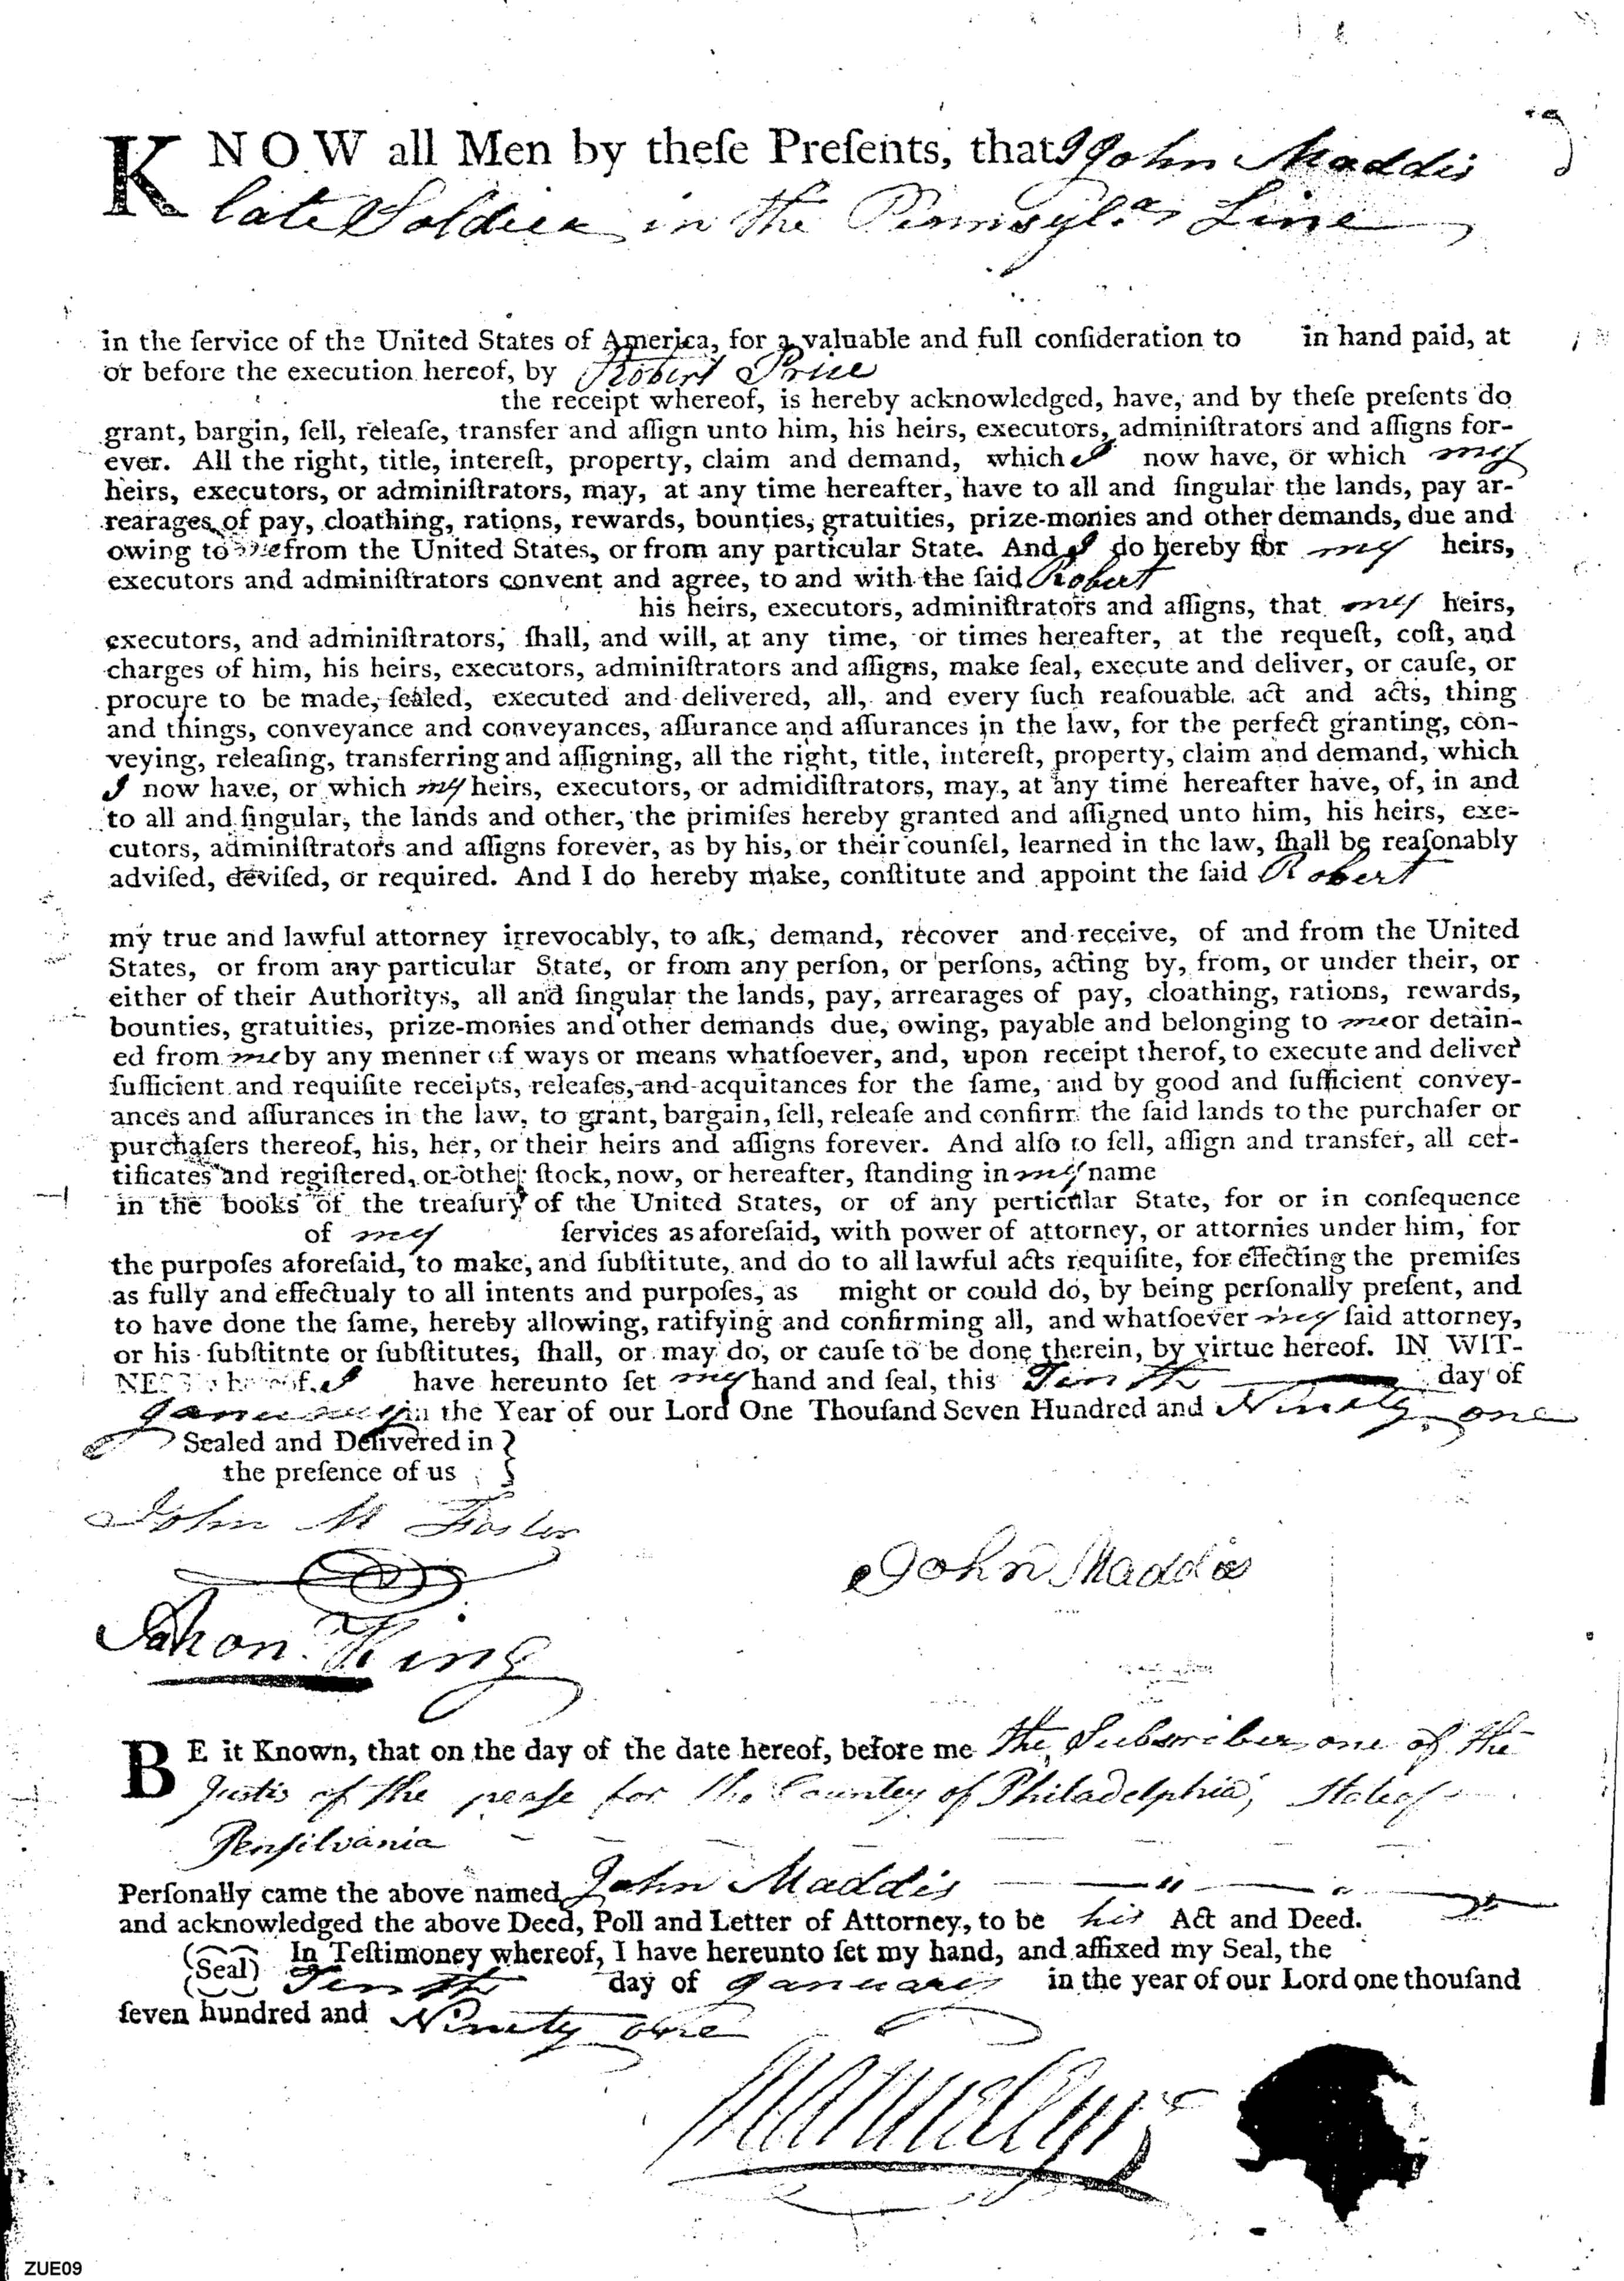 KNOW all Men by theſe Preſents, that I John Maddis
late Soldier in the Pennsylᵃˢ Line
in the ſervice of the United States of America, for a valuable and full conſideration to in hand paid, at
or before the execution hereof, by Robert Price
the receipt whereof, is hereby acknowledged, have, and by theſe preſents do
grant, bargin, ſell, releaſe, transfer and aſſign unto him, his heirs, executors, adminiſtrators and aſſigns for-
ever. All the right, title, intereſt, property, claim and demand, which I now have, or which my
heirs, executors, or adminiſtrators, may, at any time hereafter, have to all and ſingular the lands, pay ar-
rearages of pay, cloathing, rations, rewards, bounties, gratuities, prize-monies and other demands, due and
owing to me from the United States, or from any particular State. And I do hereby for my heirs,
executors and adminiſtrators convent and agree, to and with the ſaid Robert
his heirs, executors, adminiſtrators and aſſigns, that my heirs,
executors, and adminiſtrators, ſhall, and will, at any time, or times hereafter, at the requeſt, coſt, and
charges of him, his heirs, executors, adminiſtrators and aſſigns, make ſeal, execute and deliver, or cauſe, or
procure to be made, ſealed, executed and delivered, all, and every ſuch reaſouable act and acts, thing
and things, conveyance and conveyances, aſſurance and aſſurances in the law, for the perfect granting, con-
veying, releaſing, transferring and aſſigning, all the right, title, intereſt, property, claim and demand, which
I now have, or which my heirs, executors, or admidiſtrators, may, at any time hereafter have, of, in and
to all and ſingular, the lands and other, the primiſes hereby granted and aſſigned unto him, his heirs, exe-
cutors, adminiſtrators and aſſigns forever, as by his, or their counſel, learned in the law, ſhall be reaſonably
adviſed, deviſed, or required. And I do hereby make, conſtitute and appoint the ſaid Robert
my true and lawful attorney irrevocably, to aſk, demand, recover and receive, of and from the United
States, or from any particular State, or from any perſon, or perſons, acting by, from, or under their, or
either of their Authoritys, all and ſingular the lands, pay, arrearages of pay, cloathing, rations, rewards,
bounties, gratuities, prize-monies and other demands due, owing, payable and belonging to me or detain-
ed from me by any menner of ways or means whatſoever, and, upon receipt therof, to execute and deliver
ſufficient and requiſite receipts, releaſes, and acquitances for the ſame, and by good and ſufficient convey-
ances and aſſurances in the law, to grant, bargain, ſell, releaſe and confirm the ſaid lands to the purchaſer or
purchaſers thereof, his, her, or their heirs and aſſigns forever. And alſo to ſell, aſſign and transfer, all cer-
tificates and regiſtered, or other ſtock, now, or hereafter, ſtanding in my name
in the books of the treaſury of the United States, or of any perticular State, for or in conſequence
of my ſervices as aforeſaid, with power of attorney, or attornies under him, for
the purpoſes aforeſaid, to make, and ſubſtitute, and do to all lawful acts requiſite, for effecting the premiſes
as fully and effectualy to all intents and purpoſes, as might or could do, by being perſonally preſent, and
to have done the ſame, hereby allowing, ratifying and confirming all, and whatſoever my ſaid attorney,
or his ſubſtitnte or ſubſtitutes, ſhall, or may do, or cauſe to be done therein, by virtue hereof. IN WIT-
NESS whereof, I have hereunto ſet my hand and ſeal, this Tenth day of
January in the Year of our Lord One Thouſand Seven Hundred and Ninety one
Sealed and Delivered in }
the preſence of us }
John M Foster
John Maddis
King
BE it Known, that on the day of the date hereof, before me the Subscriber, one of the
Justis of the pease for the Countey of Philadelphia, State of
Pensilvania
Perſonally came the above named John Maddis
and acknowledged the above Deed, Poll and Letter of Attorney, to be his Act and Deed.
(Seal) In Teſtimoney whereof, I have hereunto ſet my hand, and affixed my Seal, the
Tenth day of January in the year of our Lord one thouſand
ſeven hundred and Ninety one
ZUE09